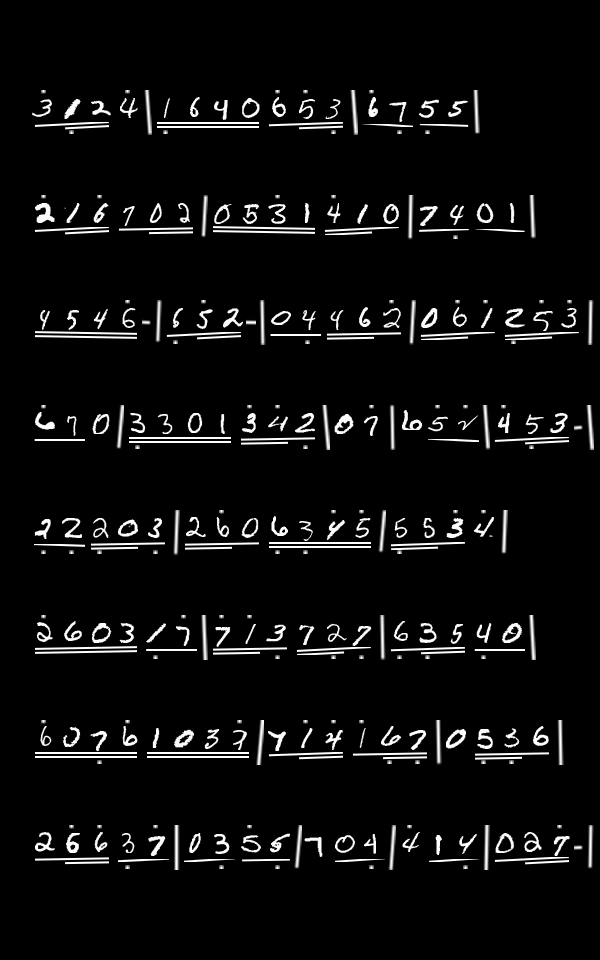 3 1 2 4 | 1 6 4 0 6 5 3 | 6 7 5 5 |
2 1 6 7 0 2 | 0 5 3 1 4 1 0 | 7 4 0 1 |
4 5 4 6 - | 6 5 2 - | 0 4 4 6 2 | 0 6 1 2 5 3 |
6 7 0 | 3 3 0 1 3 4 2 | 0 7 | 6 5 2 | 4 5 3 - |
2 2 2 0 3 | 2 6 0 6 3 4 5 | 5 5 3 4 |
2 6 0 3 1 7 | 7 1 3 7 2 7 | 6 3 5 4 0 |
6 0 7 6 1 0 3 7 | 7 1 4 1 6 7 | 0 5 3 6 |
2 6 6 3 7 | 0 3 5 5 | 7 0 4 | 4 1 4 | 0 2 7 - |